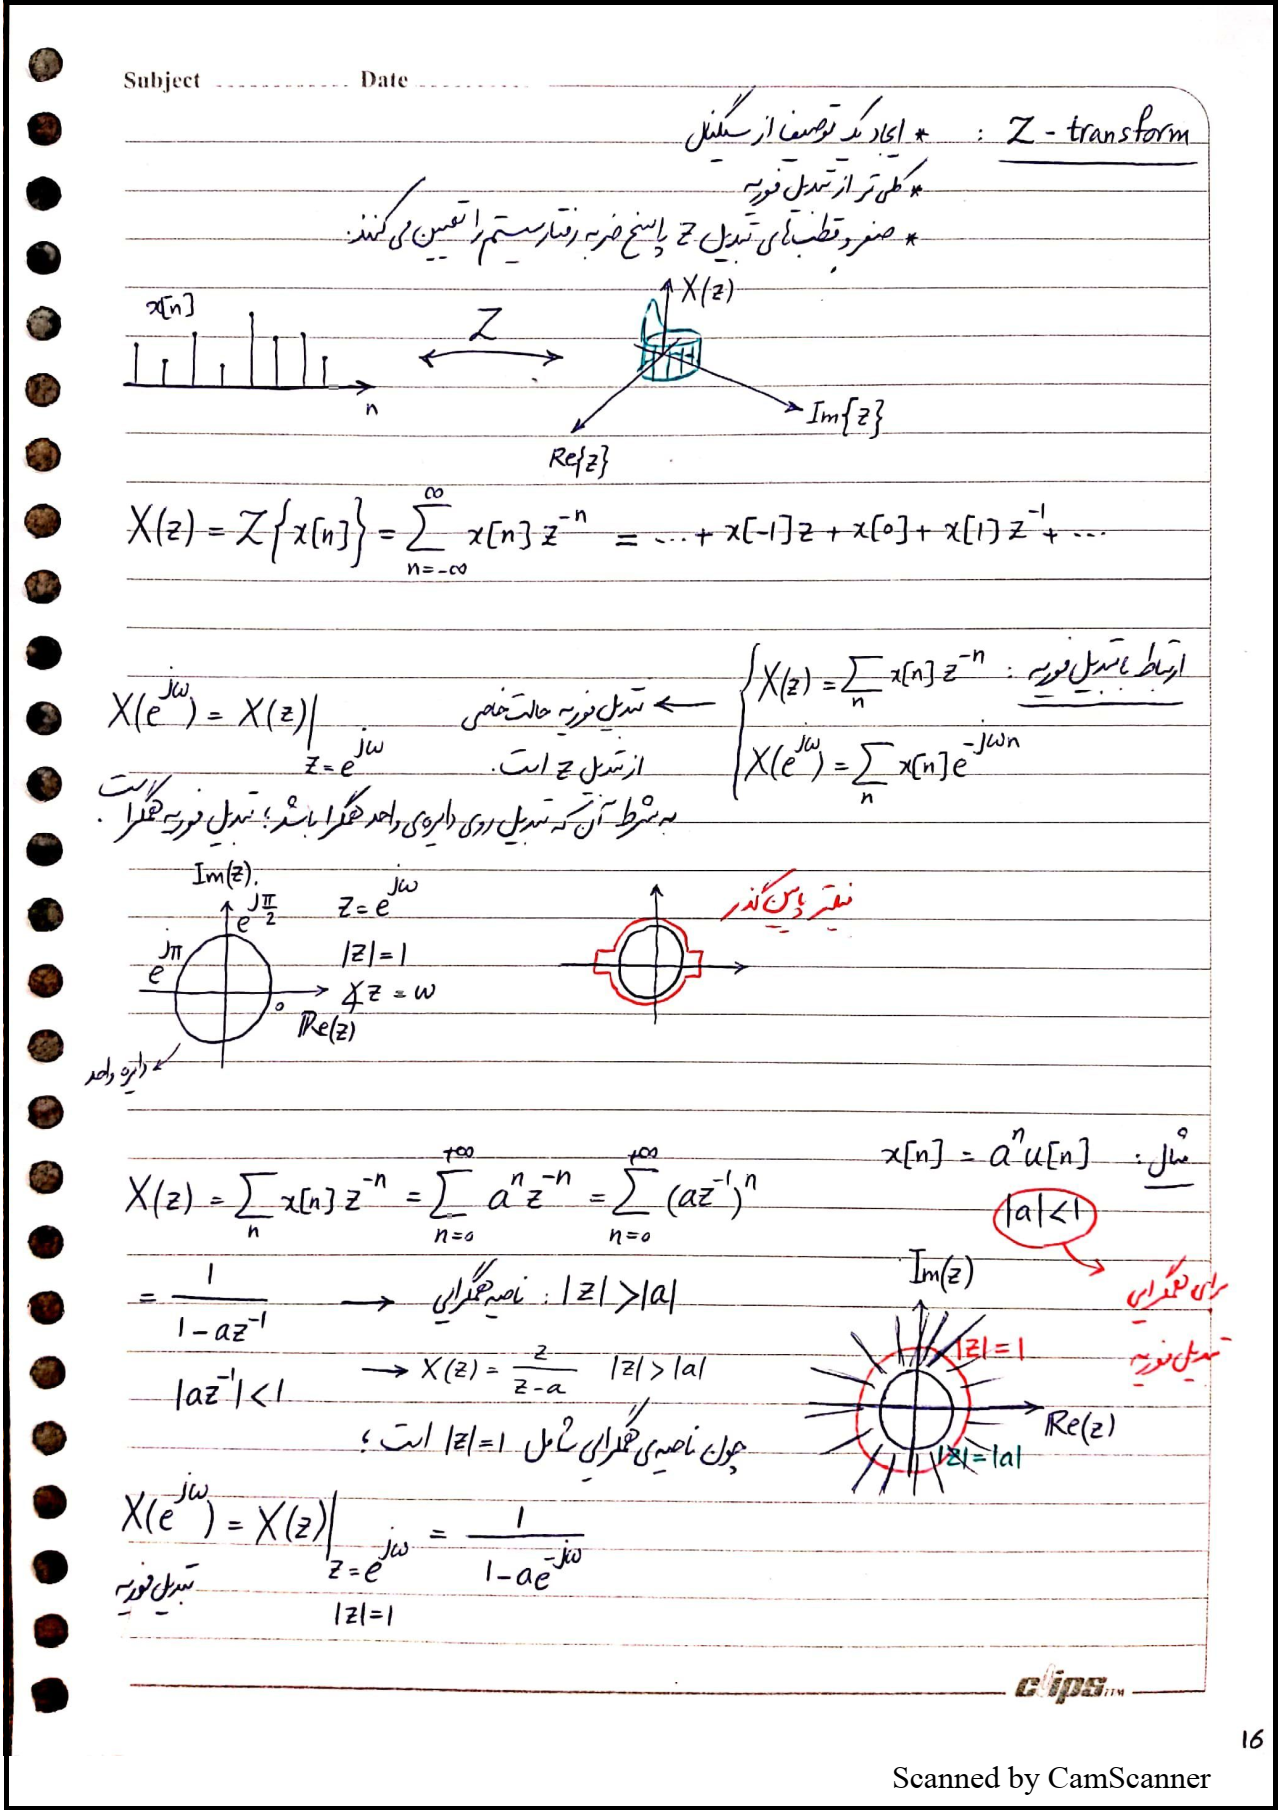 Subject ............ Date ............
Z-transform : * ایجاد یک توصیف از سیگنال
* کلی تر از تبدیل فوریه
* صفر و قطب‌های تبدیل Z پاسخ ضربه رفتار سیستم را تعیین می کنند.
x[n]
n
Z
X(z)
Im{z}
Re{z}
X(z) = Z{x[n]} = ∑_{n=-∞}^{∞} x[n] z^{-n} = ... + x[-1]z + x[0] + x[1]z^{-1} + ...
ارتباط با تبدیل فوریه : X(z) = ∑_n x[n] z^{-n}
X(e^{jω}) = ∑_n x[n] e^{-jωn}
← تبدیل فوریه حالت خاصی
از تبدیل z است.
X(e^{jω}) = X(z)|_{z=e^{jω}}
به شرط آن که تبدیل روی دایره‌ی واحد همگرا باشد؛ تبدیل فوریه همگرا است.
Im(z)
e^{jπ/2}
e^{jπ}
0
Re(z)
دایره واحد
z = e^{jω}
|z| = 1
∡z = ω
فیلتر پایین گذر
مثال : x[n] = a^n u[n]
|a|<1
برای همگرایی
تبدیل فوریه
X(z) = ∑_n x[n] z^{-n} = ∑_{n=0}^{+∞} a^n z^{-n} = ∑_{n=0}^{+∞} (az^{-1})^n
= 1/(1-az^{-1}) → ناحیه همگرایی : |z| > |a|
|az^{-1}| < 1
→ X(z) = z/(z-a) |z| > |a|
Im(z)
|z| = 1
Re(z)
|z| = |a|
چون ناحیه‌ی همگرایی شامل |z|=1 است ؛
X(e^{jω}) = X(z)|_{z=e^{jω}} = 1/(1-ae^{-jω})
|z|=1
تبدیل فوریه
clips TM
16
Scanned by CamScanner